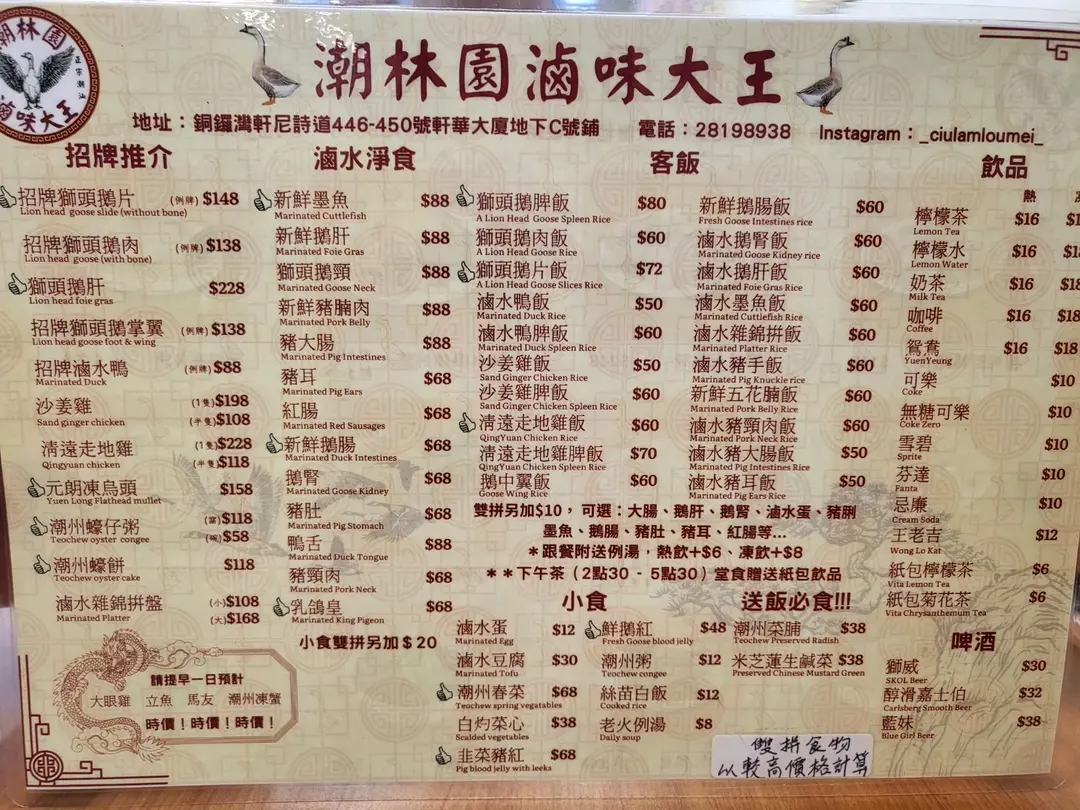 潮林園
正宗潮汕
滷味大王
潮林園滷味大王
地址：銅鑼灣軒尼詩道446-450號軒華大廈地下C號鋪 電話：28198938 Instagram：_ciulamloumei_
招牌推介
招牌獅頭鵝片 (例牌) $148
Lion head goose slide (without bone)
招牌獅頭鵝肉 (例牌) $138
Lion head goose (with bone)
獅頭鵝肝 $228
Lion head foie gras
招牌獅頭鵝掌翼 (例牌) $138
Lion head goose foot & wing
招牌滷水鴨 (例牌) $88
Marinated Duck
沙姜雞 (1隻) $198
Sand ginger chicken (半隻) $108
清遠走地雞 (1隻) $228
Qingyuan chicken (半隻) $118
元朗凍烏頭 $158
Yuen Long Flathead mullet
潮州蠔仔粥 (窩) $118
Teochew oyster congee (碗) $58
潮州蠔餅 $118
Teochew oyster cake
滷水雜錦拼盤 (小) $108
Marinated Platter (大) $168
請提早一日預訂
大眼雞 立魚 馬友 潮州凍蟹
時價！時價！時價！
滷水淨食
新鮮墨魚 $88
Marinated Cuttlefish
新鮮鵝肝 $88
Marinated Foie Gras
獅頭鵝頸 $88
Marinated Goose Neck
新鮮豬腩肉 $88
Marinated Pork Belly
豬大腸 $88
Marinated Pig Intestines
豬耳 $68
Marinated Pig Ears
紅腸 $68
Marinated Red Sausages
新鮮鵝腸 $68
Marinated Duck Intestines
鵝腎 $68
Marinated Goose Kidney
豬肚 $68
Marinated Pig Stomach
鴨舌 $88
Marinated Duck Tongue
豬頸肉 $68
Marinated Pork Neck
乳鴿皇 $68
Marinated King Pigeon
小食雙拼另加＄20
客飯
獅頭鵝脾飯 $80
A Lion Head Goose Spleen Rice
獅頭鵝肉飯 $60
A Lion Head Goose Rice
獅頭鵝片飯 $72
A Lion Head Goose Slices Rice
滷水鴨飯 $50
Marinated Duck Rice
滷水鴨脾飯 $60
Marinated Duck Spleen Rice
沙姜雞飯 $50
Sand Ginger Chicken Rice
沙姜雞脾飯 $60
Sand Ginger Chicken Spleen Rice
清遠走地雞飯 $60
QingYuan Chicken Rice
清遠走地雞脾飯 $70
QingYuan Chicken Spleen Rice
鵝中翼飯 $60
Goose Wing Rice
新鮮鵝腸飯 $60
Fresh Goose Intestines rice
滷水鵝腎飯 $60
Marinated Goose Kidney rice
滷水鵝肝飯 $60
Marinated Foie Gras Rice
滷水墨魚飯 $60
Marinated Cuttlefish Rice
滷水雜錦拼飯 $60
Marinated Platter Rice
滷水豬手飯 $60
Marinated Pig Knuckle rice
新鮮五花腩飯 $60
Marinated Pork Belly Rice
滷水豬頸肉飯 $60
Marinated Pork Neck Rice
滷水豬大腸飯 $50
Marinated Pig Intestines Rice
滷水豬耳飯 $50
Marinated Pig Ears Rice
雙拼另加$10，可選：大腸、鵝肝、鵝腎、滷水蛋、豬脷
墨魚、鵝腸、豬肚、豬耳、紅腸等...
＊跟餐附送例湯，熱飲+$6、凍飲+$8
＊＊下午茶（2點30 - 5點30）堂食贈送紙包飲品
小食
滷水蛋 $12
Marinated Egg
滷水豆腐 $30
Marinated Tofu
潮州春菜 $68
Teochew spring vegatables
白灼菜心 $38
Scalded vegetables
韭菜豬紅 $68
Pig blood jelly with leeks
鮮鵝紅 $48
Fresh Goose blood jelly
潮州粥 $12
Teochew congee
絲苗白飯 $12
Cooked rice
老火例湯 $8
Daily soup
送飯必食!!!
潮州菜脯 $38
Teochew Preserved Radish
米芝蓮生鹹菜 $38
Preserved Chinese Mustard Green
雙拼食物
以較高價格計算
飲品
熱
檸檬茶 $16
Lemon Tea
檸檬水 $16
Lemon Water
奶茶 $16 $18
Milk Tea
咖啡 $16 $18
Coffee
鴛鴦 $16 $18
YuenYeung
可樂 $10
Coke
無糖可樂 $10
Coke Zero
雪碧 $10
Sprite
芬達 $10
Fanta
忌廉 $10
Cream Soda
王老吉 $12
Wong Lo Kat
紙包檸檬茶 $6
Vita Lemon Tea
紙包菊花茶 $6
Vita Chrysanthemum Tea
啤酒
獅威 $30
SKOL Beer
醇滑嘉士伯 $32
Carlsberg Smooth Beer
藍妹 $38
Blue Girl Beer